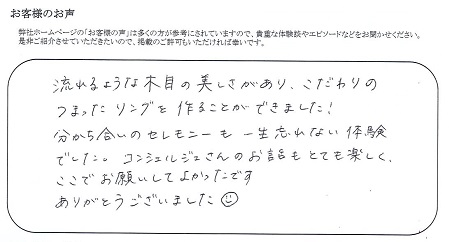 お客様のお声
弊社ホームページの「お客様の声」は多くの方が参考にされていますので、貴重な体験談やエピソードなどをお聞かせください。
是非ご紹介させていただきたいので、掲載のご許可もいただければ幸いです。
流れるような木目の美しさがあり、こだわりの
つまったリングを作ることができました!
分かち合いのセレモニーも一生忘れない体験
でした。コンシェルジュさんのお話もとても楽しく、
ここでお願いしてよかったです
ありがとうございました☺